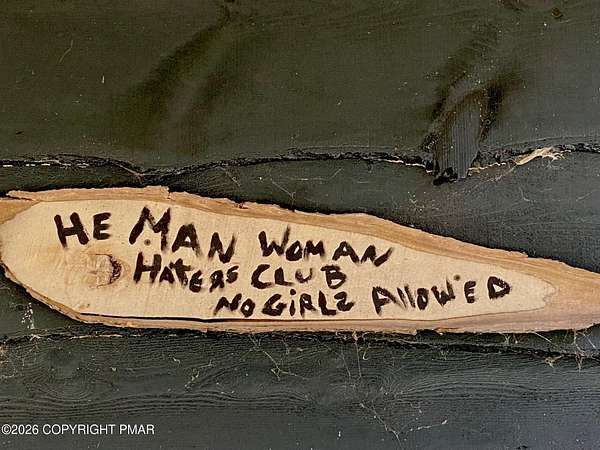 HE MAN WOMAN
HATERS CLUB
NO GIRLZ ALLOW'ED
©2026 COPYRIGHT PMAR